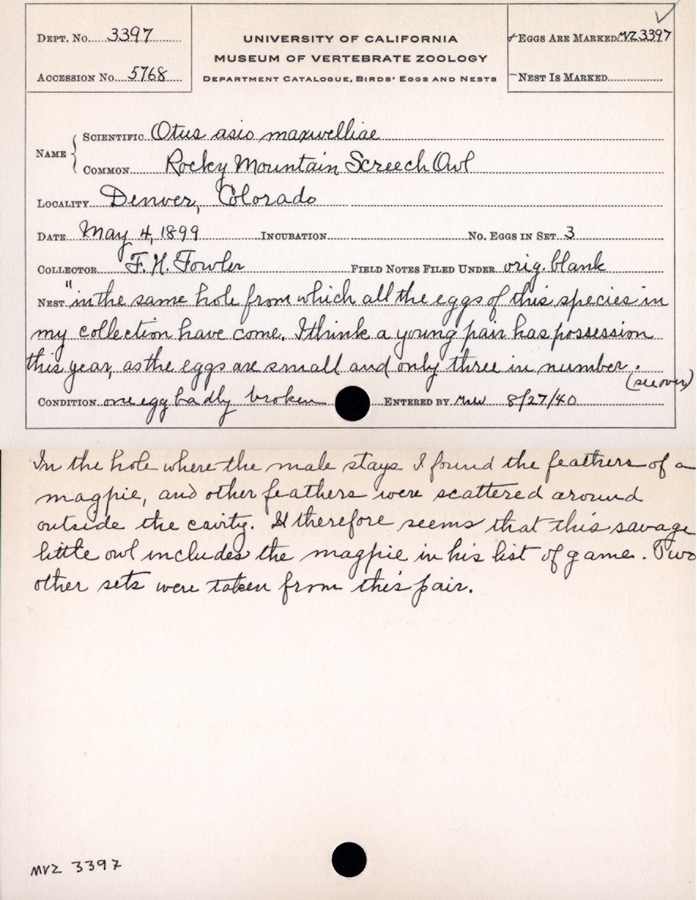 DEPT. NO. 3397
ACCESSION NO. 5768
UNIVERSITY OF CALIFORNIA
MUSEUM OF VERTEBRATE ZOOLOGY
DEPARTMENT CATALOGUE, BIRDS' EGGS AND NESTS
✓
+EGGS ARE MARKED MVZ 3397
-NEST IS MARKED
NAME
SCIENTIFIC Otus asio maxwelliae
COMMON Rocky Mountain Screech Owl
LOCALITY Denver, Colorado
DATE May 4, 1899 INCUBATION NO. EGGS IN SET 3
COLLECTOR F. H. Fowler FIELD NOTES FILED UNDER orig. blank
NEST "in the same hole from which all the eggs of this species in
my collection have come. I think a young pair has possession
this year, as the eggs are small and only three in number.
(see over)
CONDITION one egg badly broken ENTERED BY MW 8/27/40
In the hole where the male stays I found the feathers of a
magpie, and other feathers were scattered around
outside the cavity. It therefore seems that this savage
little owl includes the magpie in his list of game. Two
other sets were taken from this pair.
MVZ 3397